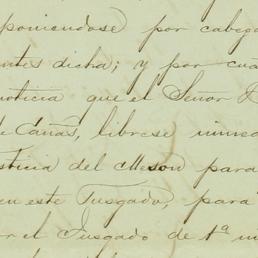 poniendose por cabeza
antes dicha; y por cua
noticia que el Señor D
de Cañas, librese inme
sticia del Meson para
en este Juzgado, para
or el Juzgado de 1ª in